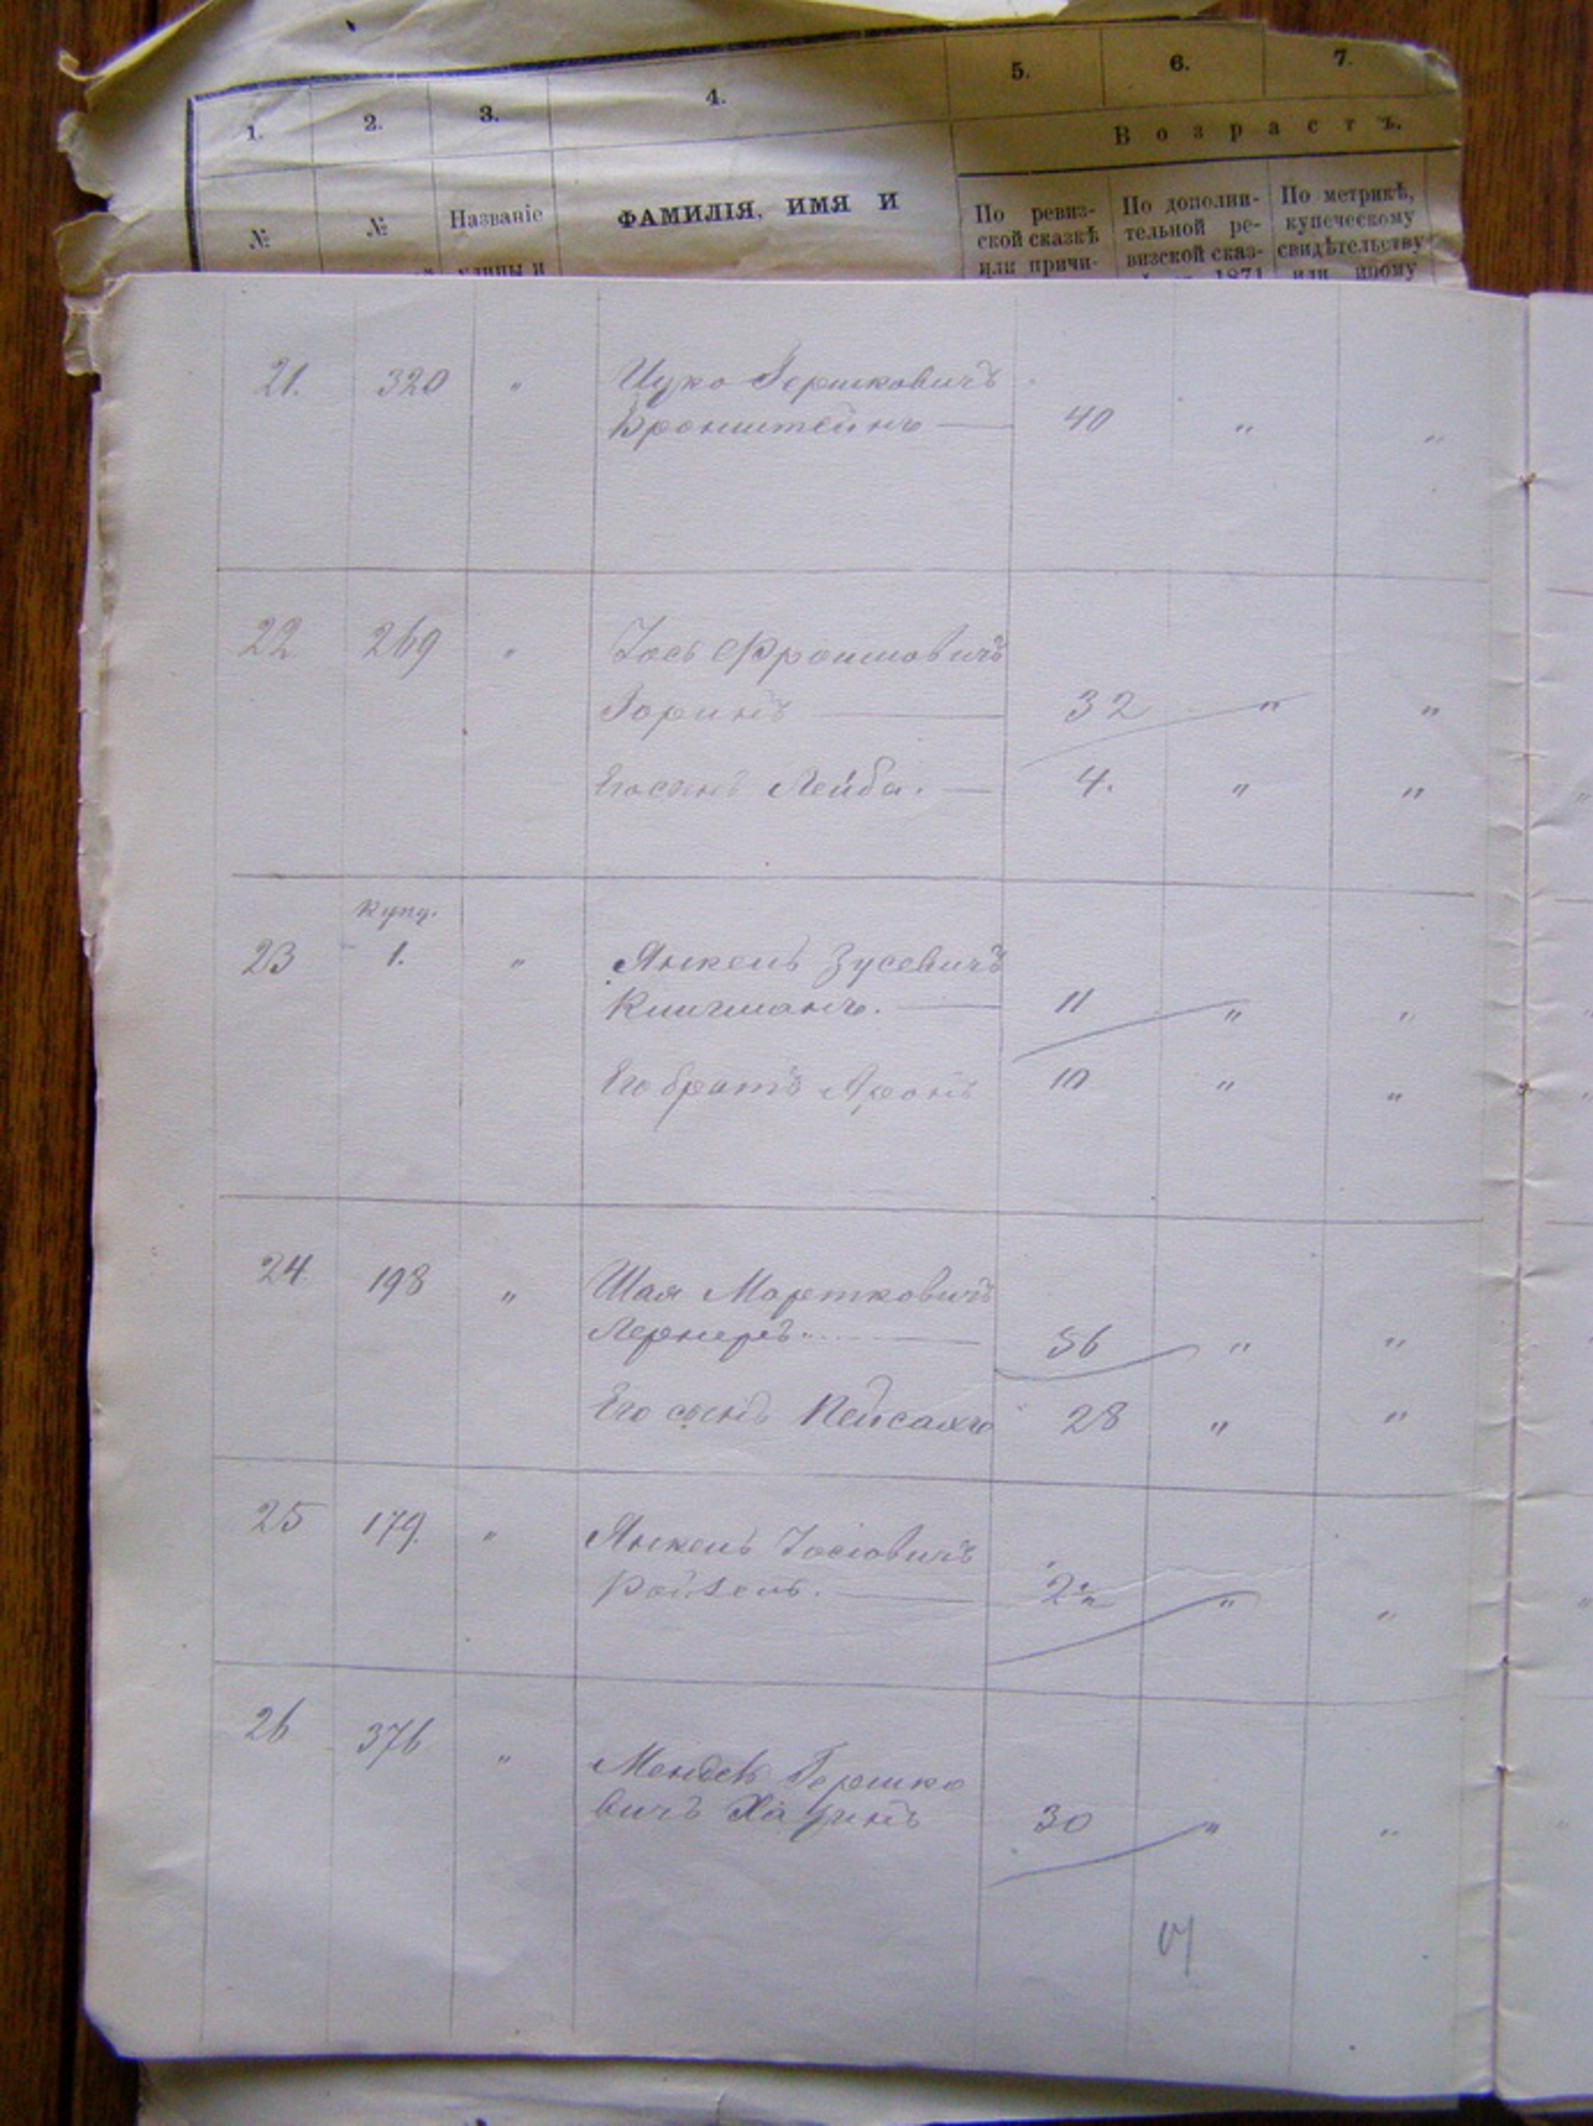 1. 2. 3. 4. 5. 6. 7.
Возрастъ.
№ № Названіе ФАМИЛІЯ, ИМЯ И По ревиз- По дополни- По метрикѣ,
улицы и ской сказкѣ тельной ре- купеческому
или причи- визской сказ- свидѣтельству
1871 или иному
21. 320 " Ицко Гершковичъ
Бронштейнъ 40 " "
22 269 " Іось Фроимовичъ
Горинъ 32 " "
Его сынъ Лейба. 4. " "
Купц.
23 1. " Янкель Зусевичъ
11 " "
Его братъ Аронъ 10 " "
24. 198 " Шая Мортковичъ
Лернеръ. 56 " "
Его сынъ Пейсахъ 28 " "
25 179. " Янкель Іосіовичъ
Ройзенъ. " "
26 376 " Мендель Гершко
вичъ 30 " "